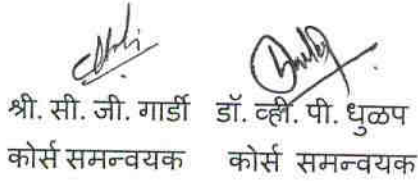 श्री. सी. जी. गार्डी डॉ. व्ही. पी. धुळप
कोर्स समन्वयक कोर्स समन्वयक